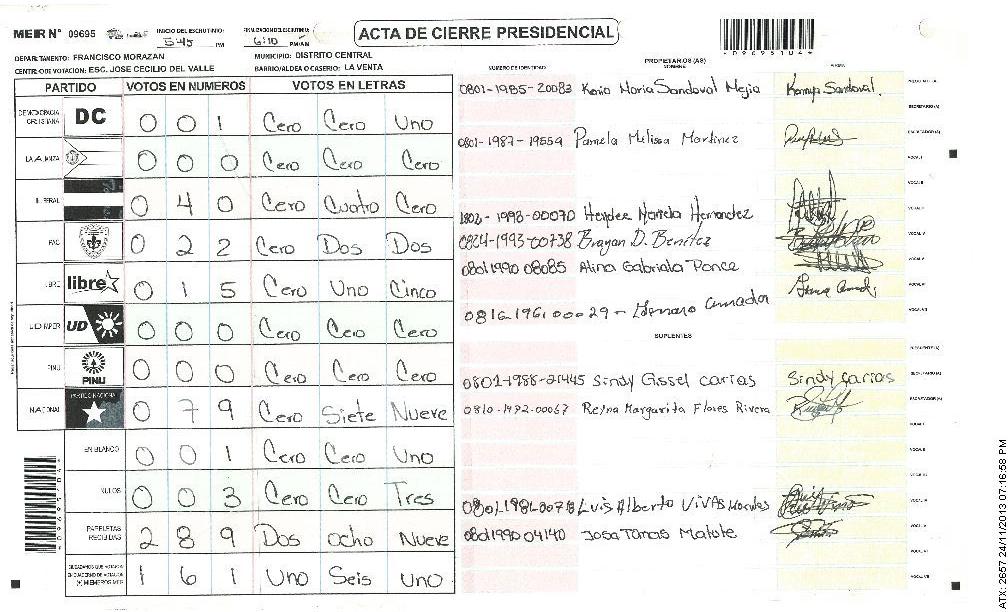 MER N° 09695
INICIO DEL ESCRUTINIO: 5:45 PM
FINALIZACION DEL ESCRUTINIO: 6:10 PM/AM
ACTA DE CIERRE PRESIDENCIAL
*09695104*
DEPARTAMENTO: FRANCISCO MORAZAN
MUNICIPIO: DISTRITO CENTRAL
CENTRO DE VOTACION: ESC. JOSE CECILIO DEL VALLE
BARRIO/ALDEA O CASERIO: LA VENTA
PARTIDO VOTOS EN NUMEROS VOTOS EN LETRAS
DEMOCRACIA CRISTIANA DC 0 0 1 Cero Cero Uno
LA ALIANZA 0 0 0 Cero Cero Cero
LIBERAL 0 4 0 Cero Cuatro Cero
PAC 0 2 2 Cero Dos Dos
LIBRE libre 0 1 5 Cero Uno Cinco
UD 0 0 0 Cero Cero Cero
PINU PINU 0 0 0 Cero Cero Cero
NACIONAL PARTIDO NACIONAL 0 7 9 Cero Siete Nueve
EN BLANCO 0 0 1 Cero Cero Uno
NULOS 0 0 3 Cero Cero Tres
PAPELETAS RECIBIDAS 2 8 9 Dos ocho Nueve
1 6 1 Uno Seis uno
NUMERO DE IDENTIDAD
PROPIETARIOS (AS)
NOMBRE
FIRMA
0801-1985-20083 Karia Maria Sandoval Mejia Sandoval
SECRETARIO(A)
ESCRUTADOR(A)
0801-1987-19559 Pamela Melissa Martinez
VOCAL I
VOCAL II
1802-1998-00070 Hernandez
0824-1993-00738 Brayan D. Benitez
0801 1990 08085 Alina Gabriela Ponce
0816-1961 00029 - Amador
SUPLENTES
PRESIDENTE(A)
SECRETARIO(A)
0801-1988-21445 Sindy Gissel carias Sindy Carias
ESCRUTADOR(A)
0810-1972-00067 Reyna Margarita Flores Rivera
VOCAL I
VOCAL II
Luis Alberto VIVAS Morales
0801 1990 04140 Jose Tomas Matute
ATX: 2657 24/11/2013 07:16:58 PM